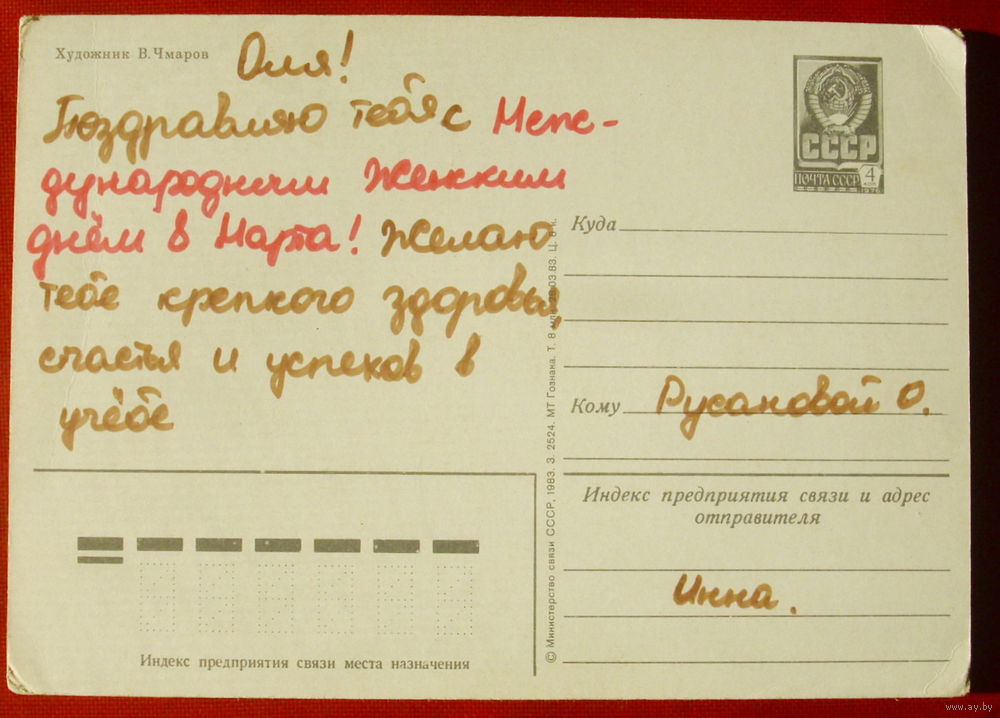 Художник В. Чмаров
Оля!
Поздравляю тебя с Меже-
дународным Женским
днём 8 Марта! Желаю
тебе крепкого здоровья,
счастья и успехов в
учёбе
СССР
ПОЧТА СССР 4 коп
1976
Куда
Кому Русановой О.
Индекс предприятия связи и адрес
отправителя
Инна.
© Министерство связи СССР, 1983. З. 2524. МТ Гознака. Т. 8 млн. 03.83. Ц. 8 к.
Индекс предприятия связи места назначения
www.ay.by